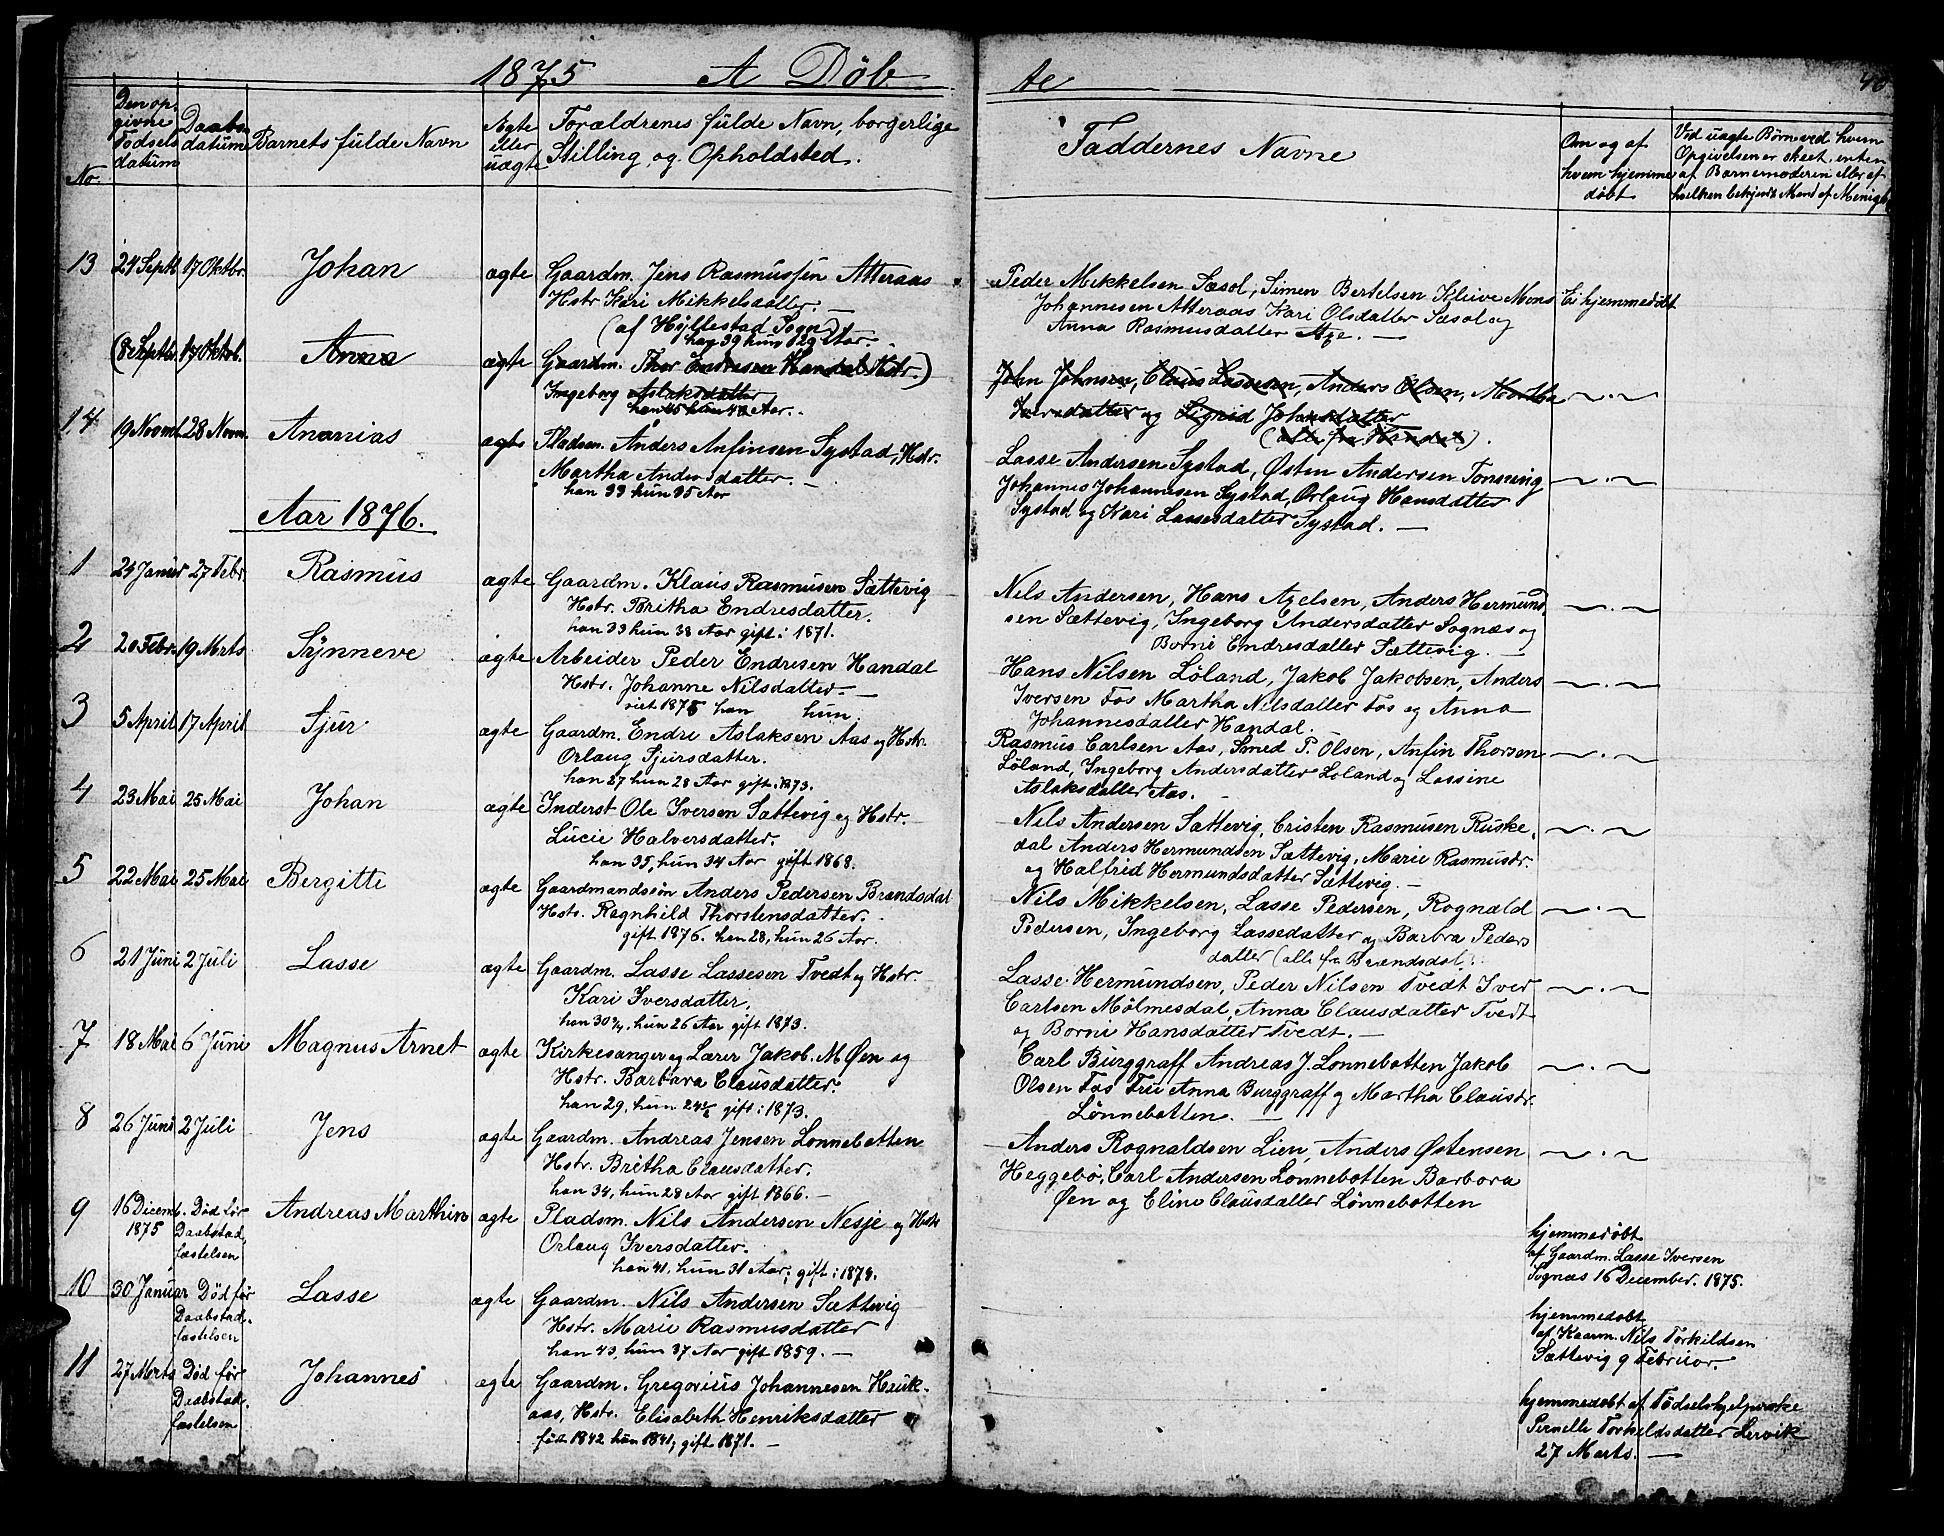 1875 A Døb te 40
No.
Den op-
givne
Fødsels
datum
Daabs
datum
Barnets fulde Navn
Ægte
eller
uægte
Forældrenes fulde Navn, borgerlige
Stilling og Opholdsted.
Faddernes Navne
Om og af
hvem hjemme
døbt
Ved uægte Børn ved hvem
Opgivelsen er skeet, enten
af Barnemoderen eller af
hvilken bekjendt Mand af Menigh.
13 24 Septb 17 Oktbr. Johan ægte Gaardm. Jens Rasmussen Atteraas
Hstr Kari Mikkelsdatter.
(af Hyllestad Sogn)
han 39 hun 29 Aar.
Peder Mikkelsen Sæsol, Simen Bertelsen Kleive Mons
Johannesen Atteraas Kari Olsdatter Sæsol og
Anna Rasmusdatter
Ei hjemmedøbt
(8 Septbr. 17 Oktob. Anna ægte Gaardm. Thor Endresen Handal Hstr.)
Ingeborg Aslaksdatter
John Johnsen, Claus Lassesen, Anders Olsen, Martha
Iversdatter og Sigrid Johnsdatter
(alle fra Handal).
14 19 Novmb. 28 Novm. Ananias ægte Pladsm. Anders Anfinsen Systad, Hstr.
Martha Andersdatter. —
han 33 hun 35 Aar
Lasse Andersen Systad, Østen Andersen Tonning
Johannes Johannesen Systad, Orlaug Hansdatter
Systad og Kari Lassesdatter Systad. —
Aar 1876.
1 24 Januar 27 Febr. Rasmus ægte Gaardm. Klaus Rasmusen Sættevig
Hstr. Britha Endresdatter.
han 33 hun 38 Aar gift i 1871.
Nils Andersen, Hans Axelsen, Anders Hermund
sen Sættevig, Ingeborg Andersdatter Sognæs og
Borni Endresdatter Sættevig. —
2 20 Febr. 19 Mrts Synneve ægte Arbeider Peder Endresen Handal
Hstr. Johanne Nilsdatter. —
viet 1875 han hun
Hans Nilsen Løland, Jakob Jakobsen, Anders
Iversen Fos Martha Nilsdatter Fos og Anna
Johannesdatter Handal.
3 5 April 17 April Sjur ægte Gaardm. Endre Aslaksen Aas og Hstr.
Orlaug Sjursdatter.
han 27 hun 28 Aar gift. 1873.
Rasmus Carlsen Aas, Smed P. Olsen, Anfin Thorsen
Løland, Ingeborg Andersdatter Loland og Lassine
Aslaksdatter Aas. —
4 23 Mai 25 Mai Johan ægte Inderst Ole Iversen Sættevig og Hstr.
Lucie Halversdatter.
han 35, hun 34 Aar gift 1868.
Nils Andersen Sættevig, Cristen Rasmusen Ruske
dal Anders Hermundsen Sættevig, Marie Rasmusdr.
og Halfrid Hermundsdatter Sættevig. —
5 22 Mai 25 Mai Bergitte ægte Gaardmandssøn Anders Pedersen Brandsdal
Hstr. Regnhild Thorstensdatter.
gift 1876. han 28, hun 26 Aar.
Nils Mikkelsen, Lasse Pedersen, Rognald
Pedersen, Ingeborg Lassedatter og Barbra Peders
datter (alle fr. Brændsdal.
6 21 Juni 2 Juli Lasse ægte Gaardm. Lasse Lassesen Tvedt og Hstr.
Kari Iversdatter.
han 30 ¾, hun 26 Aar gift 1873.
Lasse Hermundsen, Peder Nilsen Tvedt Iver
Carlsen Mølmesdal, Anna Clausdatter Tvedt
og Borni Hansdatter Tvedt. —
7 18 Mai 6 Juni Magnus Arnet ægte Kirkesanger og Lærer Jakob. M Øen og
Hstr. Barbara Clausdatter.
han 29, hun 24½ gift i 1873.
Carl Burggraff Andreas J. Lonnebotten Jakob
Olsen Fos Fru Anna Burggraff og Martha Clausdr.
Lønnebotten. —
8 26 Juni 2 Juli Jens ægte Gaardm. Andreas Jensen Lonnebotten
Hstr. Britha Clausdatter.
han 34, hun 28 Aar gift 1866. —
Anders Rognaldsen Lien, Anders Østensen
Heggebø, Carl Andersen Lonnebotten Barbara
Øen og Eline Clausdatter Lønnebotten
9 16 Decemb. 1875 Død før
Daabstad-
fæstelsen
Andreas Marthin ægte Pladsm. Nils Andersen Nesje og Hstr
Orlaug Iversdatter.
han 41, hun 31 Aar; gift i 1874.
hjemmedøbt
af Gaardm. Lasse Iversen
Sognæs 16 December. 1875.
10 30 Januar Død før
Daabstad-
fæstelsen
Lasse ægte Gaardm. Nils Andersen Sættevig
Hstr. Marie Rasmusdatter
han 43, hun 37 Aar gift 1859. —
hjemmedøbt
af Kaarm. Nils Torkildsen
Sættevig 9 Februar.
11 27 Marts Død før
Daabstad-
fæstelsen
Johannes ægte Gaardm. Gregorius Johannesen Hauk-
aas, Hstr. Elisabeth Henriksdatter
født 1842 hun 1841, gift 1871. —
hjemmedøbt af Fødselshjelperske
Pernelle Torkildsdatter Lervik
27 Marts. —